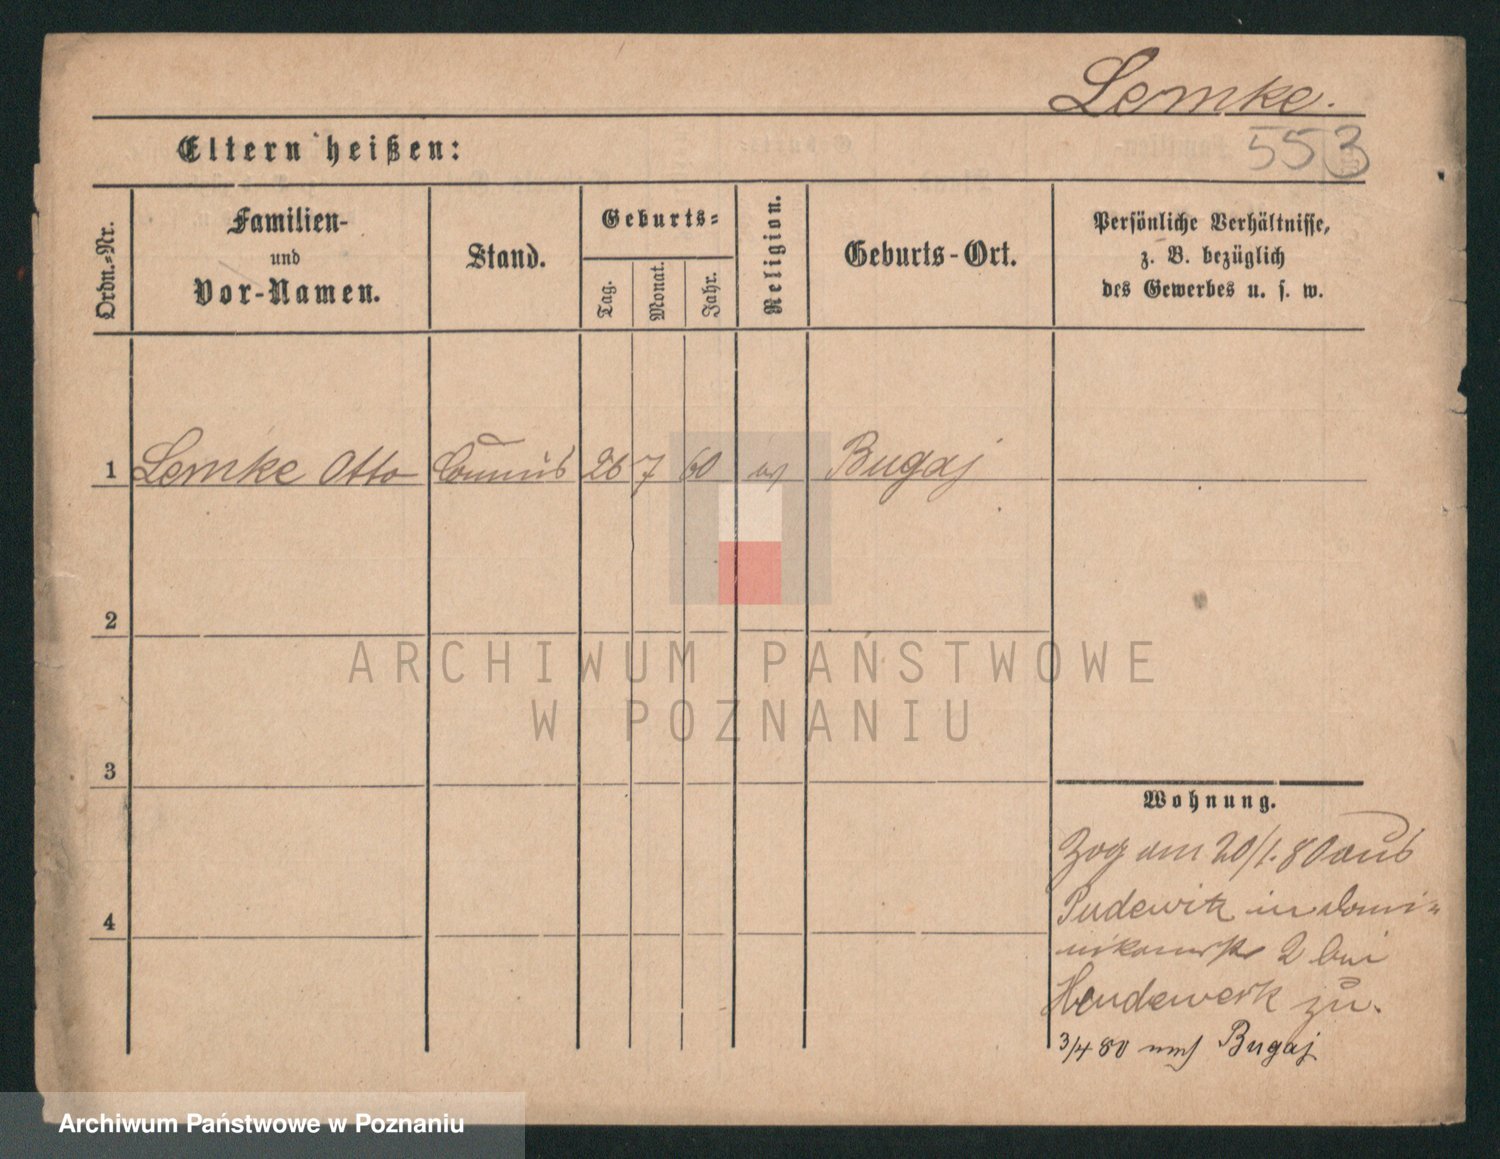 Lemke.
553
Eltern heißen:
Ordn.-Nr.
Familien-
und
Vor-Namen.
Stand.
Geburts-
Tag.
Monat.
Jahr.
Religion.
Geburts-Ort.
Persönliche Verhältnisse,
z. B. bezüglich
des Gewerbes u. s. w.
1 Lemke Otto Commis 26 7 60 ev Bugaj
2
ARCHIWUM PAŃSTWOWE
W POZNANIU
3
Wohnung.
Zog am 20/1. 80 aus
Pudewitz in Domi-
nikanerstr 2 bei
Handewerk zu.
4
3/4 80 nach Bugaj
Archiwum Państwowe w Poznaniu